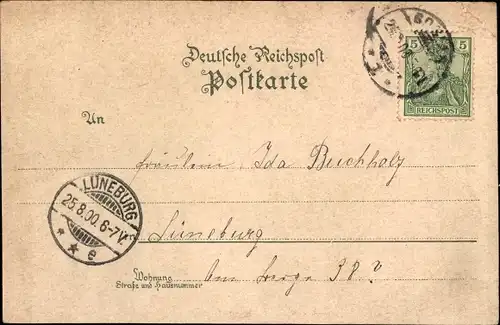 5 5
REICHSPOST
Deutsche Reichspost
Postkarte
An
Fräulein Ida Buchholz
LÜNEBURG
25.8.00.6-7V.
* * e
Lüneburg
Wohnung
Straße und Hausnummer
Am Berge 38